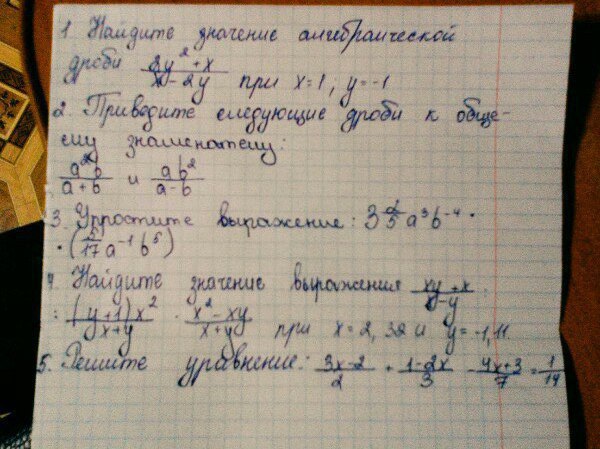 1. Найдите значение алгебраической
дроби (2y² + x)/(x - 2y) при x = 1, y = -1
2. Приводите следующие дроби к обще-
ему знаменателю:
a²b/(a + b) и ab²/(a - b)
3. Упростите выражение: 3 2/5 a³b⁻⁴ ·
· (5/17 a⁻¹b⁵)
4. Найдите значение выражения (xy + x)/(x - y) :
: (y + 1)x²/(x + y) · (x² - xy)/(x + y) при x = 2,32 и y = -1,11.
5. Решите уравнение: (3x - 2)/2 + (1 - 2x)/3 - (4x + 3)/7 = 1/14